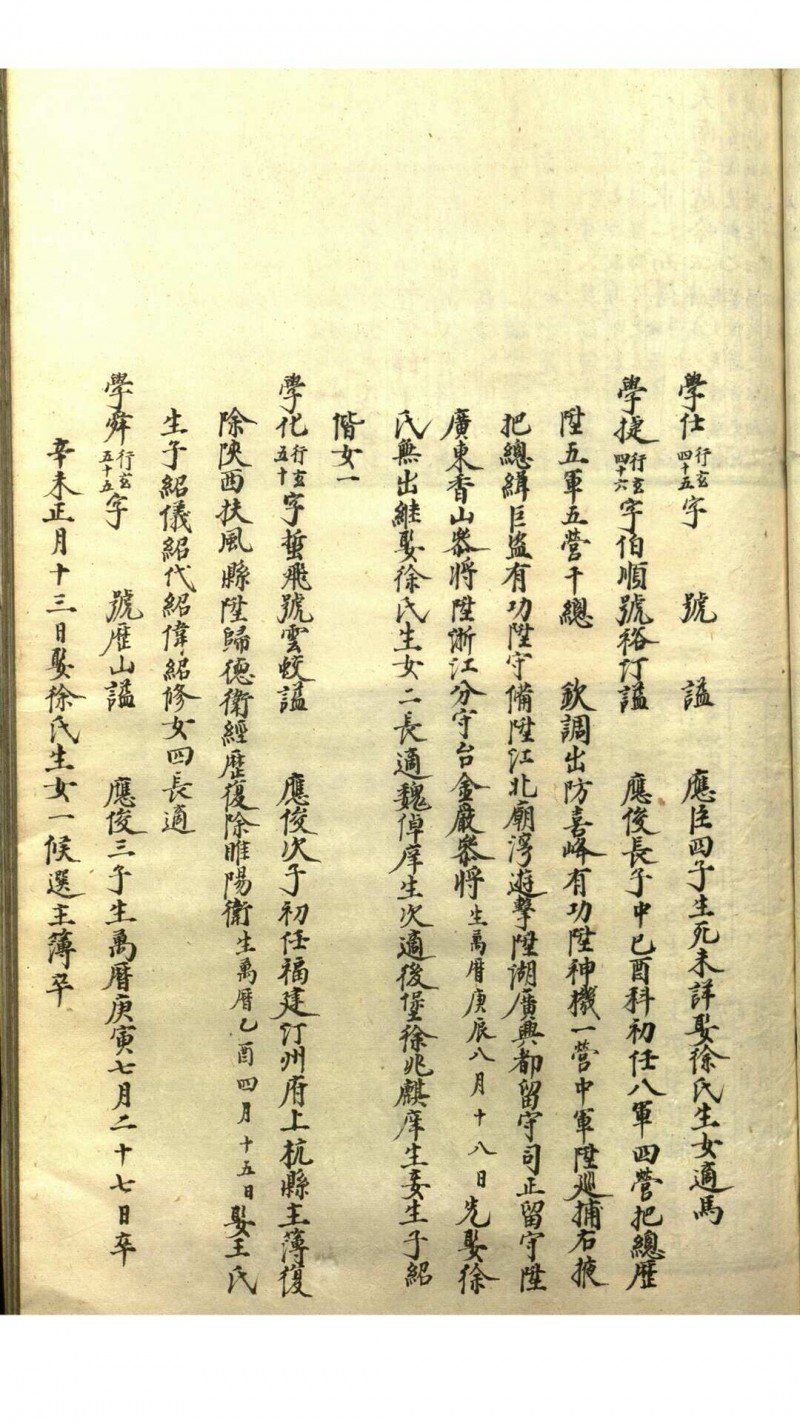 學仕行玄四十五字　號　諡　應臣四子生死未詳娶徐氏生女適馬
學捷行玄四十六字伯順號裕汀諡　應俊長子中己酉科初任八軍四營把總歷
陞五軍五營千總　欽調出防喜峰有功陞神機一營中軍陞廵捕右掖
把總緝巨盜有功陞守備陞江北廟灣遊擊陞湖廣興都留守司正留守陞
廣東香山叅將陞浙江分守台金嚴叅將生萬曆庚辰八月十八日先娶徐
氏無出継娶徐氏生女二長適魏倬庠生次適後堡徐兆麒庠生妾生子紹
階女一
學化行玄五十字蜇飛號雲蛟諡　應俊次子初任福建汀州府上杭縣主簿復
除陝西扶風縣陞歸德衛經歷復除睢陽衛生萬曆乙酉四月十五日娶王氏
生子紹儀紹代紹偉紹修女四長適
學舜行玄五十五字　號歷山諡　應俊三子生萬曆庚寅七月二十七日卒
辛未正月十三日娶徐氏生女一候選主簿卒